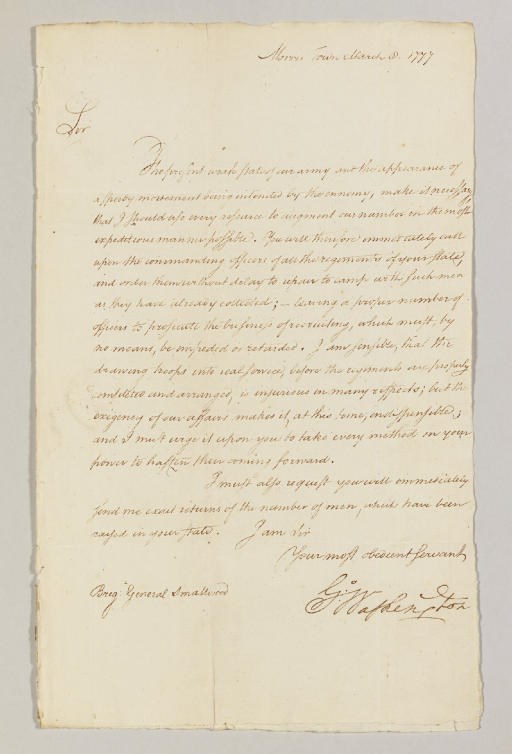 Morris Town March 8. 1777
Sir
The present weak state of our army and the appearance of
a speedy movement being intended by the enemy, make it necessary
that I should use every resource to augment our number in the most
expeditious manner possible. You will therefore immediately call
upon the commanding officers of all the regiments of your State,
and order them without delay to repair to camp with such men
as they have already collected; – leaving a proper number of
officers to prosecute the business of recruiting, which must, by
no means, be impeded or retarded. I am sensible, that the
drawing troops into real service, before the regiments are properly
and arranged, is injurious in many respects; but the
exigency of our affairs makes it, at this time, indispensible;
and I must urge it upon you to take every method in your
power to hasten their coming forward.
I must also request you will immediately
send me exact returns of the number of men, which have been
raised in your State. I am Sir
Your most obedient servant
Go. Washington
Brig. General Smallwood